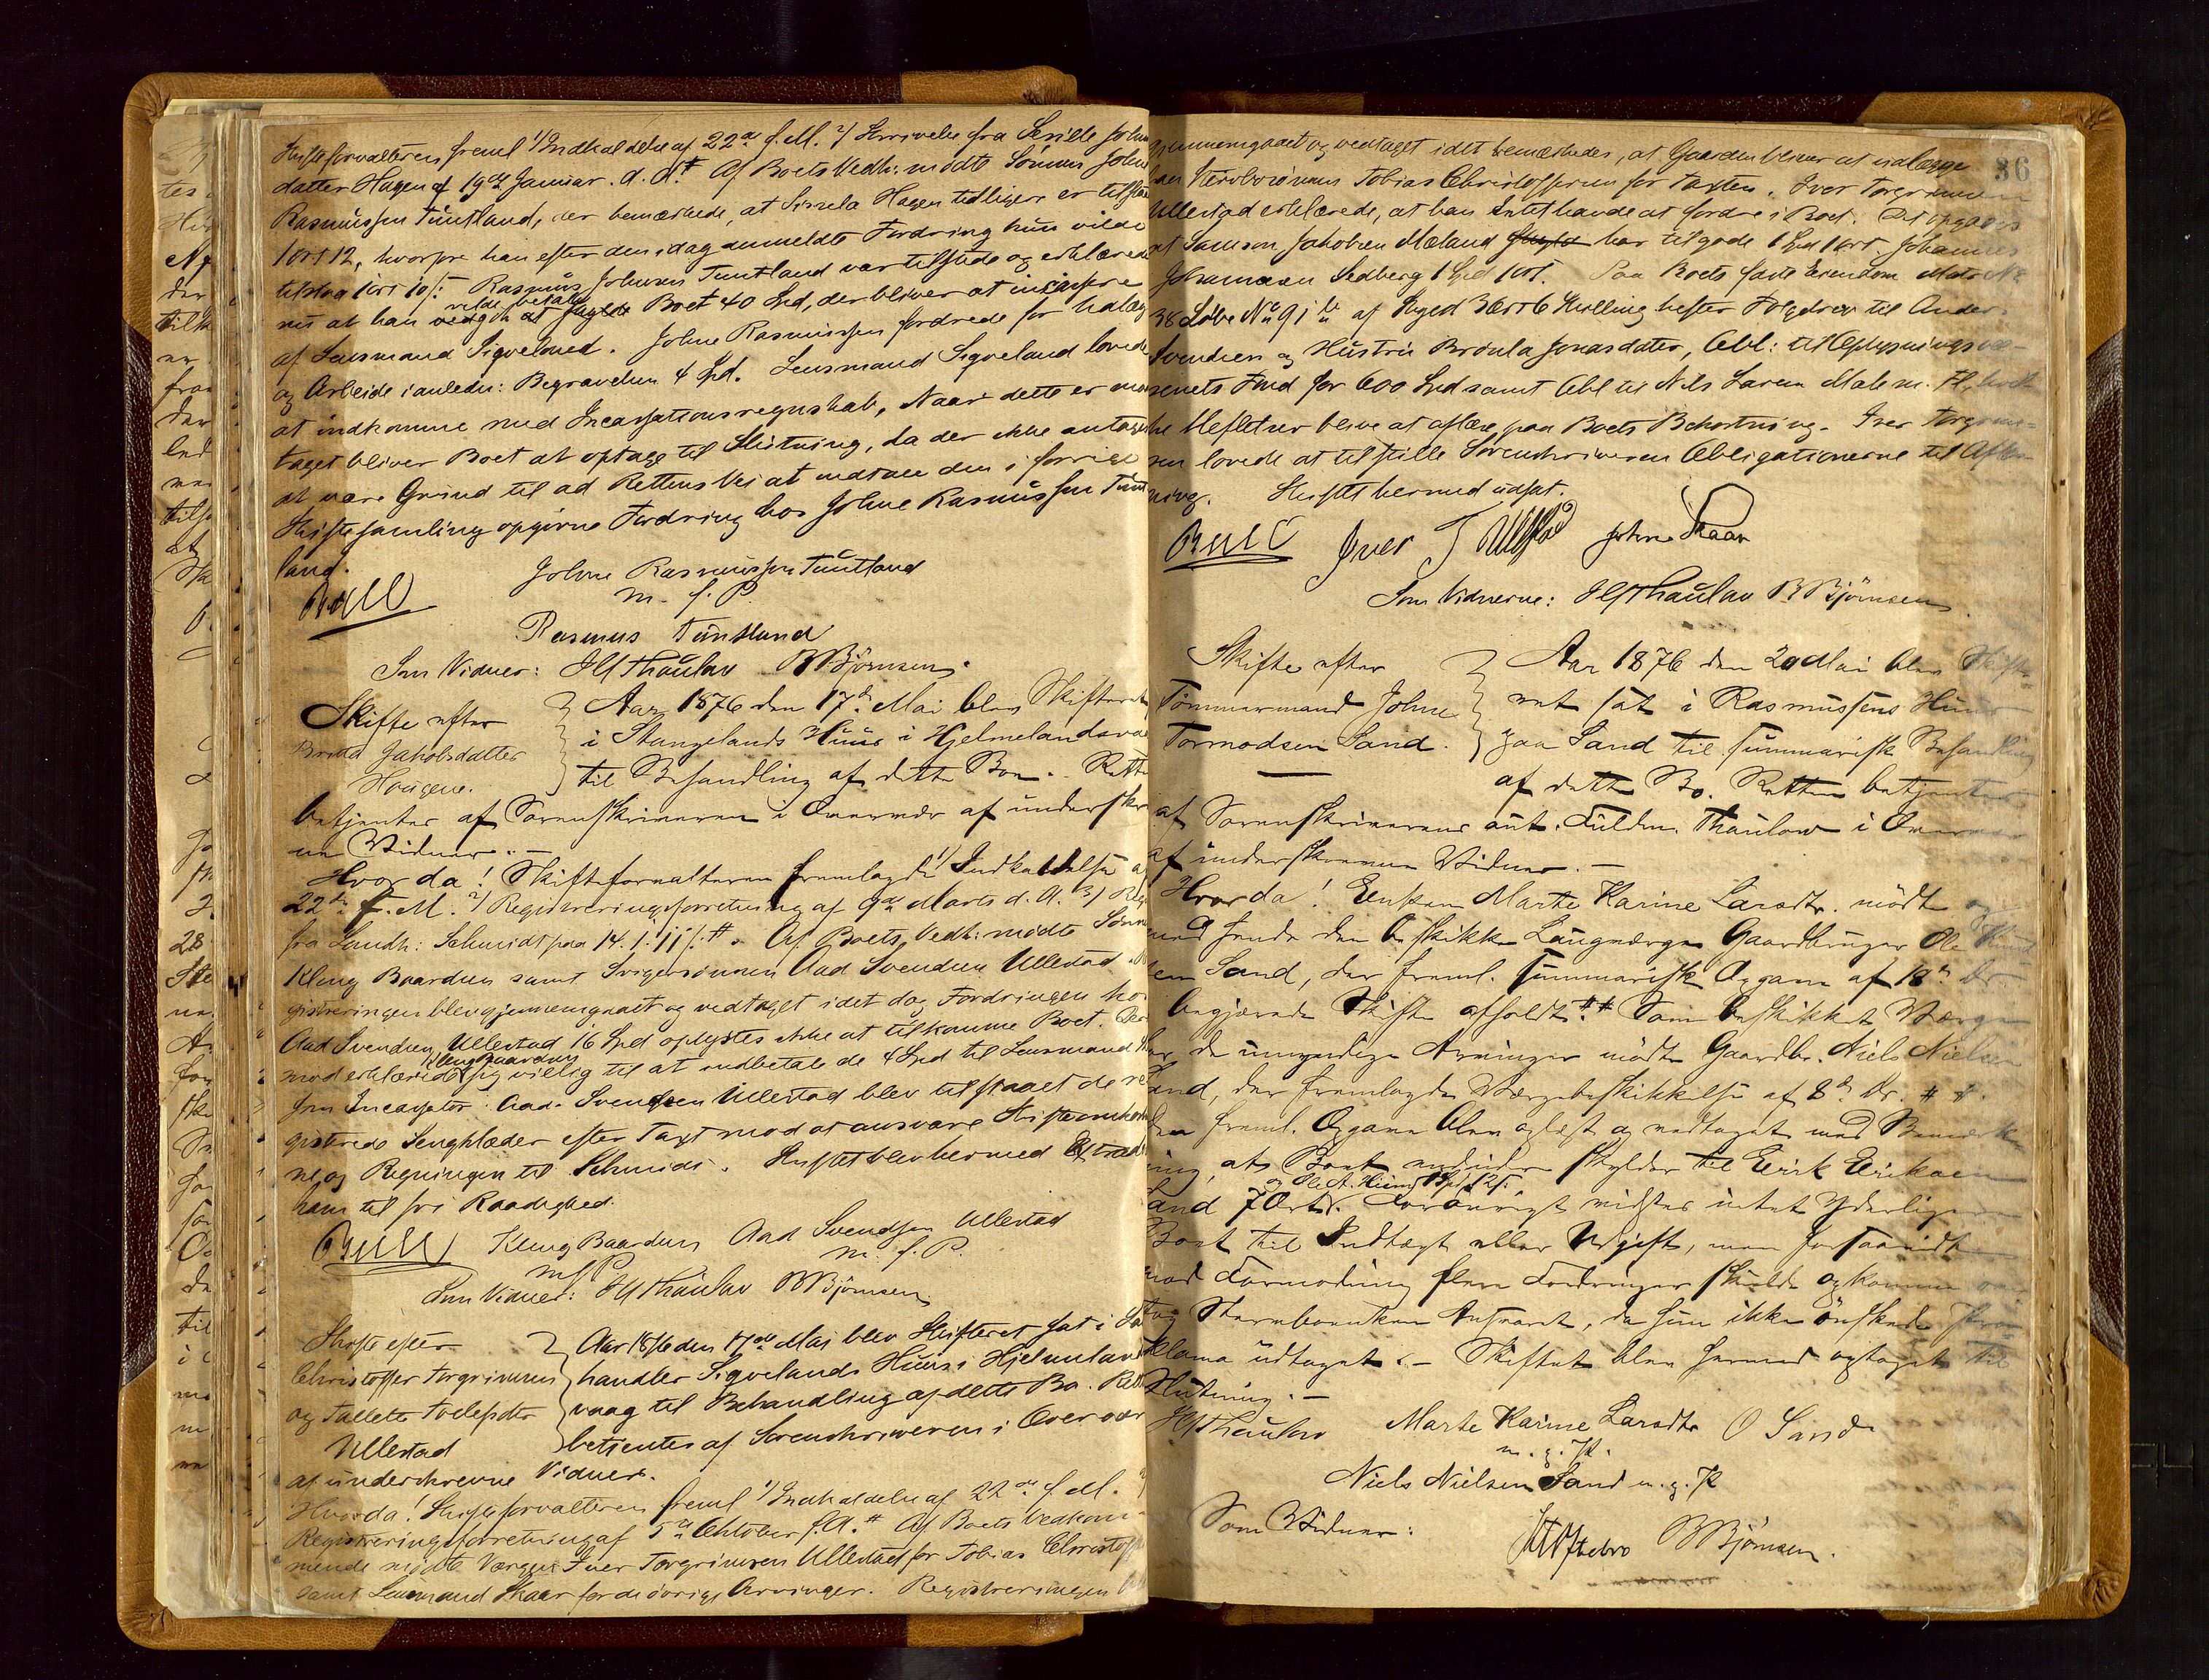 Skifteforvalteren freml 1) Indkaldelse af 22de f.M. 2) Skrivelse fra Sesille Johns
datter Hagen af 19de Januar d. A. # Af Boets Vedk: mødte Sønnen Johne
Rasmussen Tuntland, der bemærkede, at Sissela Hagen tidligere er tilstaaet
1 ort 12, hvorpaa han efter den idag anmeldte Fordring kun vilde
tilstaa 1 ort 10 s. Rasmus Johnsen Tuntland var tilstede og erklærede
nu at han vilde betale Boet 40 Spd, der bliver at incassere
af Lensmand Sigveland. Johne Rasmussen fordrede for Udlæg
og Arbeide i anledn: Begravelsen 4 Spd. Lensmand Sigveland lovede
at indkomme med Incassationsregnskab, Naar dette er mod
taget bliver Boet at optage til Slutning, da der ikke antages
at være Grund til ad Rettens Vei at indtale den i forrige
Skiftesamling opgivne Fordring hos Johne Rasmussen Tunt
land.
Bull Johne Rasmussen Tuntland
m. f. P.
Rasmus Tuntland
Som Vidner: HSThaulow BBjørnsen.
Skifte efter
Britta Jakobsdatter
Hougene.
Aar 1876 den 17de Mai blev Skifteret
i Stangelands Huus i Hjelmelandsvaag
til Behandling af dette Bo. Retten
betjentes af Sorenskriveren i Overvær af underskrev
ne Vidner. –
Hvorda! Skifteforvalteren fremlagde 1) Indkaldelse af
22de f.M. 2) Registreringsforretning af 9de Marts d. A. 3) Regn
fra Landh: Schmidt paa 14.1.11 s. #. Af Boets Vedk: mødte Sønnen
Kleng Baardsen samt Svigersønnen Aad Svendsen Ullestad. Re
gistreringen blev gjennemgaaet og vedtaget idet dog Fordringen hos
Aad Svendsen Ullestad 16 Spd oplystes ikke at tilkomme Boet. Der
mod erklærede Kleng Baardsen sig villig til at indbetale de 4 Spd til Lensmand
som Incassator. Aad Svendsen Ullestad blev tilstaaet de re
gistrede Sengklæder efter Taxt mod at ansvare Skifteomkostn
ne og Regningen til Schmidt. Skiftet blev hermed Extrad
ham til fri Raadighed.
Bull Kleng Baardsen Aad Svendsen Ullestad
m f P. m. f. P.
Som Vidner: HSThaulow BBjørnsen.
Skifte efter
Christoffer Torgrimsen
og Tallette Tollefsdtr
Ullestad
Aar 1876 den 17de Mai blev Skifteret sat i
handler Sigvelands Huus i Hjelmelands
vaag til Behandling af dette Bo. Rett
betjentes af Sorenskriveren i Overvær
af underskrevne Vidner.
Hvorda! Skifteforvalteren freml 1) Indkaldelse af 22de f. M. 2)
Registreringsforretning af 5te Oktober f. A. # Af Boets Vedkom
mende mødte Værgen Iver Torgrimsen Ullestad for Tobias Christoff
samt Lensmand Skaar for de øvrige Arvinger. Registreringen
36
gjennemgaaet og vedtaget idet bemærkedes, at Gaarden bliver at udlægge
Tobias Christoffersen for Taxten. Iver Torgrimsen
Ullestad erklærede, at han Intet havde at fordre i Boet. Det opgaves
at Samson Jakobsen Mæland har tilgode 1 Spd 1 ort. Johannes
Johannesen Sedberg 1 Spd 1 ort. Paa Boets faste Eiendom Matr No
38 Løbe No 91 b af Skyld 3 ort 6 Skilling hefter Folgebrev til Anders
Svendsen og Hustru Brønla Jonasdatter, Obl: til Oplysningsvæ-
senets Fond for 600 Spd samt Obl til Nils Larsen
Heftelser blive at aflæse paa Boets Bekostning. Iver Torgrim-
sen lovede at tilstille Sorenskriveren Obligationerne til Aflæs
ning. Skiftet hermed udsat.
Bull Iver T Ullestad Johne Skaar
Som Vidnerne: HSThaulow BBjørnsen.
Skifte efter
Tømmermand Johne
Tormodsen Sand.
Aar 1876 den 20 Mai blev Skifte-
ret sat i Rasmussens Huus
paa Sand til summarisk Behandling
af dette Bo. Retten betjentes
af Sorenskriverens aut. Fuldm. Thaulow i Overvær
af underskrevne Vidner. –
Hvorda! Enken Marte Karine Larsdtr. mødte og
med hende den beskikkede Laugværge Gaardbruger Ole
sen Sand, der freml. summarisk Opgave af 18de ds
begjærende Skifte afholdt. ## Som beskikket Værge
for de umyndige Arvinger mødte Gaardbr. Niels Nielsen
Sand, der fremlagde Værgebeskikkelse af 8de ds. # #.
Den freml. Opgave blev oplæst og vedtaget med Bemærk
ning, at Boet endvidere skylder til Eirik Eiriksen
og Ole A. Hiim 1 Spd 12 s.
Sand 7 Ort. Forøvrigt vidstes intet Yderligere
Boet til Indtægt eller Udgift, men forsaavidt
mod Formodning flere Fordringer skulde opkomme
tog Stervboenken Ansvaret, da hun ikke ønskede Pro-
klama udtaget. – Skiftet blev hermed optaget til
Slutning. –
HSThaulow Marte Karine Larsdtr O Sand
m. g. P.
Niels Nielsen Sand m. g. P
Som Vidner:
BBjørnsen.